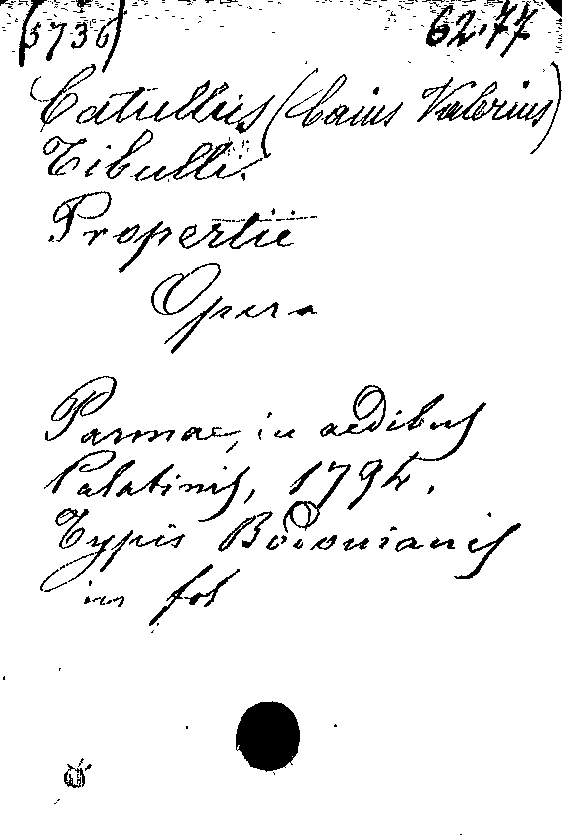 (5736) 62.77
Catullus (Caius Valerius)
Tibulli.
Propertii
Opera
Parmae, in aedibus
Palatinis, 1794.
Typis Bodonianis
in fol